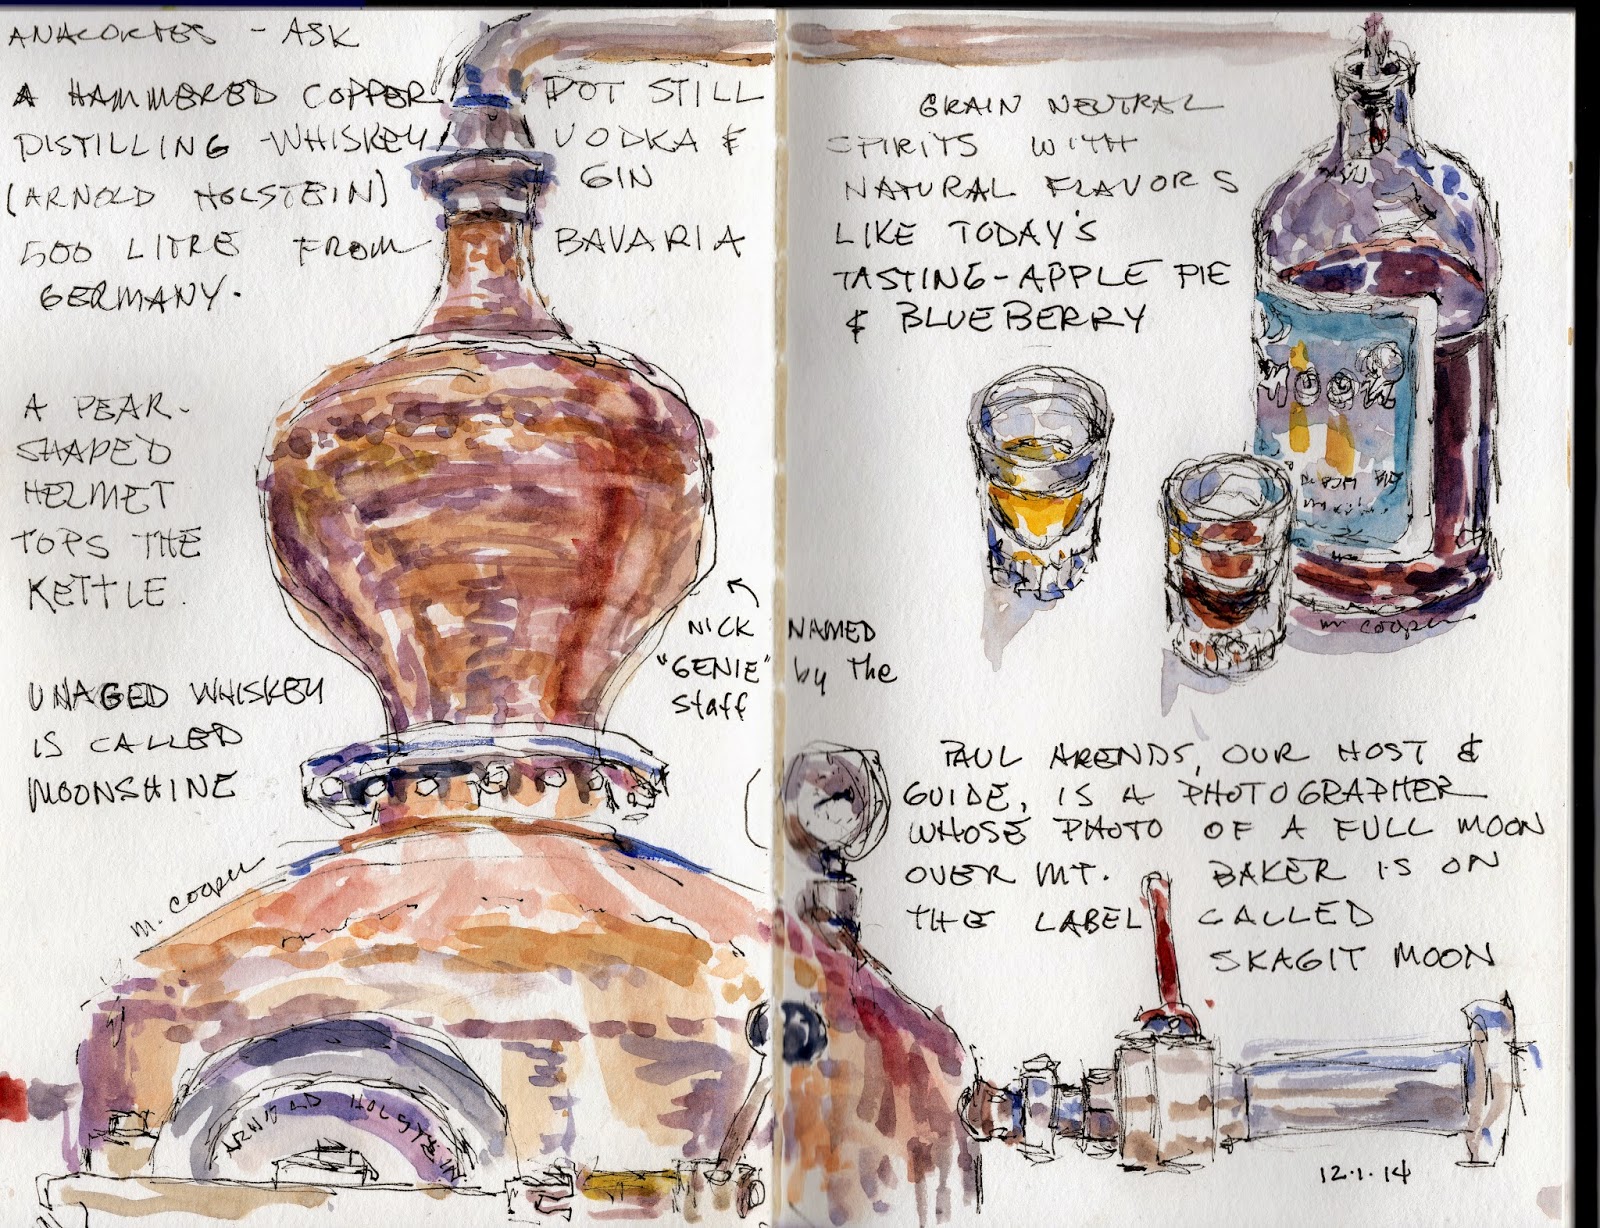 ANACORTES - ASK
A HAMMERED COPPER POT STILL
DISTILLING - WHISKEY VODKA &
(ARNOLD HOLSTEIN) GIN
500 LITRE FROM BAVARIA
GERMANY.
A PEAR-
SHAPED
HELMET
TOPS THE
KETTLE.
UNAGED WHISKEY
IS CALLED
MOONSHINE
NICK NAMED
"GENIE" by the
staff
m. cooper
ARNOLD HOLSTEIN
GRAIN NEUTRAL
SPIRITS WITH
NATURAL FLAVORS
LIKE TODAY'S
TASTING - APPLE PIE
& BLUEBERRY
MOON
m cooper
PAUL ARENDS, OUR HOST &
GUIDE, IS A PHOTOGRAPHER
WHOSE PHOTO OF A FULL MOON
OVER MT. BAKER IS ON
THE LABEL CALLED
SKAGIT MOON
12.1.14